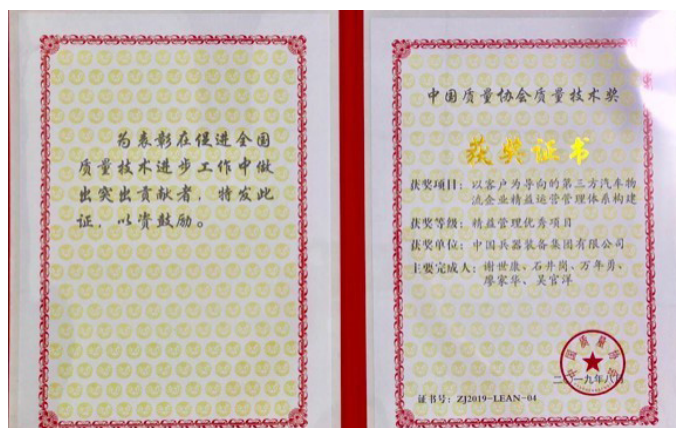 为表彰在促进全国
质量技术进步工作中做
出突出贡献者，特发此
证，以资鼓励。
中国质量协会质量技术奖
获奖证书
获奖项目：以客户为导向的第三方汽车物
流企业精益运营管理体系构建
获奖等级：精益管理优秀项目
获奖单位：中国兵器装备集团有限公司
主要完成人：谢世康、石井岗、万年勇、
廖家华、吴官洋
中国质量协会
二〇一九年八月
证书号：ZJ2019-LEAN-04